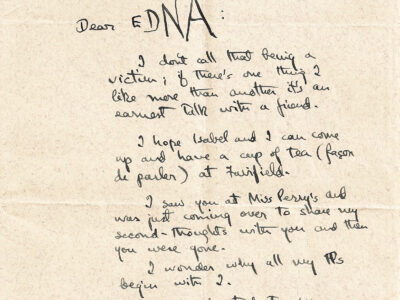 Dear EDNA:
I don't call that being a
victim; if there's one thing I
like more than another it's an
earnest talk with a friend.
I hope Isabel and I can come
up and have a cup of tea (façon
de parler) at Fairfield.
I saw you at Miss Perry's and
was just coming over to share my
second-thoughts with you and then
you were gone.
I wonder, why all my Ps
begin with I.